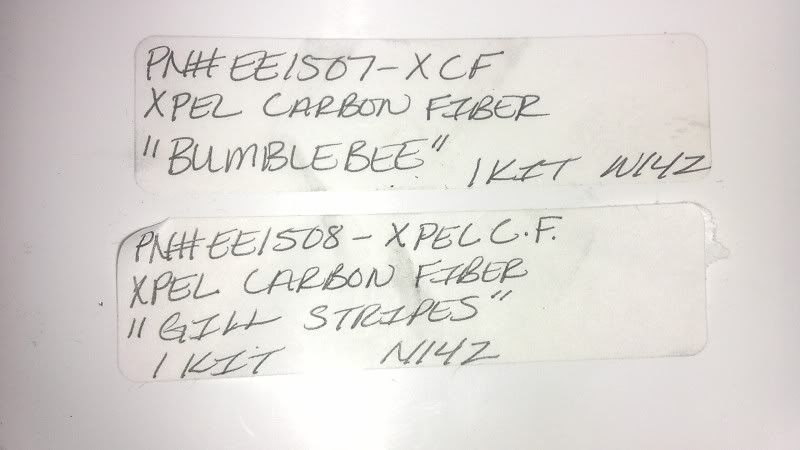 PN# EE1507-XCF
XPEL CARBON FIBER
"BUMBLEBEE"
1 KIT N14Z
PN# EE1508-XPEL C.F.
XPEL CARBON FIBER
"GILL STRIPES"
1 KIT N14Z